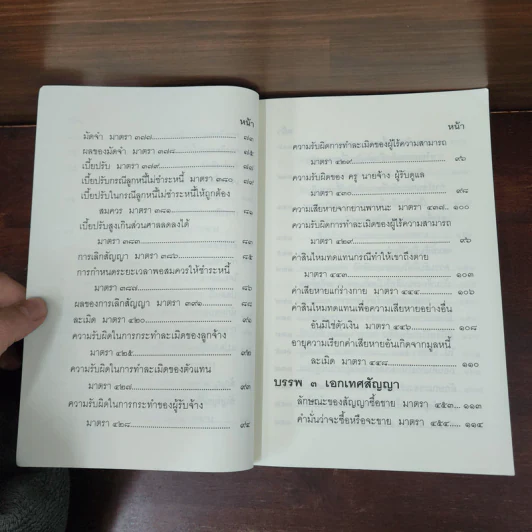 หน้า
มัดจำ มาตรา ๓๗๗
ผลของมัดจำ มาตรา ๓๗๘
เบี้ยปรับ มาตรา ๓๗๙
เบี้ยปรับกรณีลูกหนี้ไม่ชำระหนี้ มาตรา ๓๘๐
เบี้ยปรับในกรณีลูกหนี้ไม่ชำระหนี้ให้ถูกต้อง
สมควร มาตรา ๓๘๑
เบี้ยปรับสูงเกินส่วนศาลลดลงได้
มาตรา ๓๘๓
การเลิกสัญญา มาตรา ๓๘๖
การกำหนดระยะเวลาพอสมควรให้ชำระหนี้
มาตรา ๓๘๗
ผลของการเลิกสัญญา มาตรา ๓๙๑
ละเมิด มาตรา ๔๒๐
ความรับผิดในการกระทำละเมิดของลูกจ้าง
มาตรา ๔๒๕
ความรับผิดในการทำละเมิดของตัวแทน
มาตรา ๔๒๗
ความรับผิดในการกระทำของผู้รับจ้าง
มาตรา ๔๒๘
หน้า
ความรับผิดการทำละเมิดของผู้ไร้ความสามารถ
มาตรา ๔๒๙ ๙๖
ความรับผิดของ ครู นายจ้าง ผู้รับดูแล
มาตรา ๔๓๐ ๙๘
ความเสียหายจากยานพาหนะ มาตรา ๔๓๗.. ๑๐๐
ความรับผิดการทำละเมิดของผู้ไร้ความสามารถ
มาตรา ๔๒๙ ๙๖
ค่าสินไหมทดแทนกรณีทำให้เขาถึงตาย
มาตรา ๔๔๓ ๑๐๓
ค่าเสียหายแก่ร่างกาย มาตรา ๔๔๔ ๑๐๖
ค่าสินไหมทดแทนเพื่อความเสียหายอย่างอื่น
อันมิใช่ตัวเงิน มาตรา ๔๔๖ ๑๐๘
อายุความเรียกค่าเสียหายอันเกิดจากมูลหนี้
ละเมิด มาตรา ๔๔๘ ๑๑๐
บรรพ ๓ เอกเทศสัญญา
ลักษณะของสัญญาซื้อขาย มาตรา ๔๕๓... ๑๑๓
คำมั่นว่าจะซื้อหรือจะขาย มาตรา ๔๕๔..... ๑๑๔